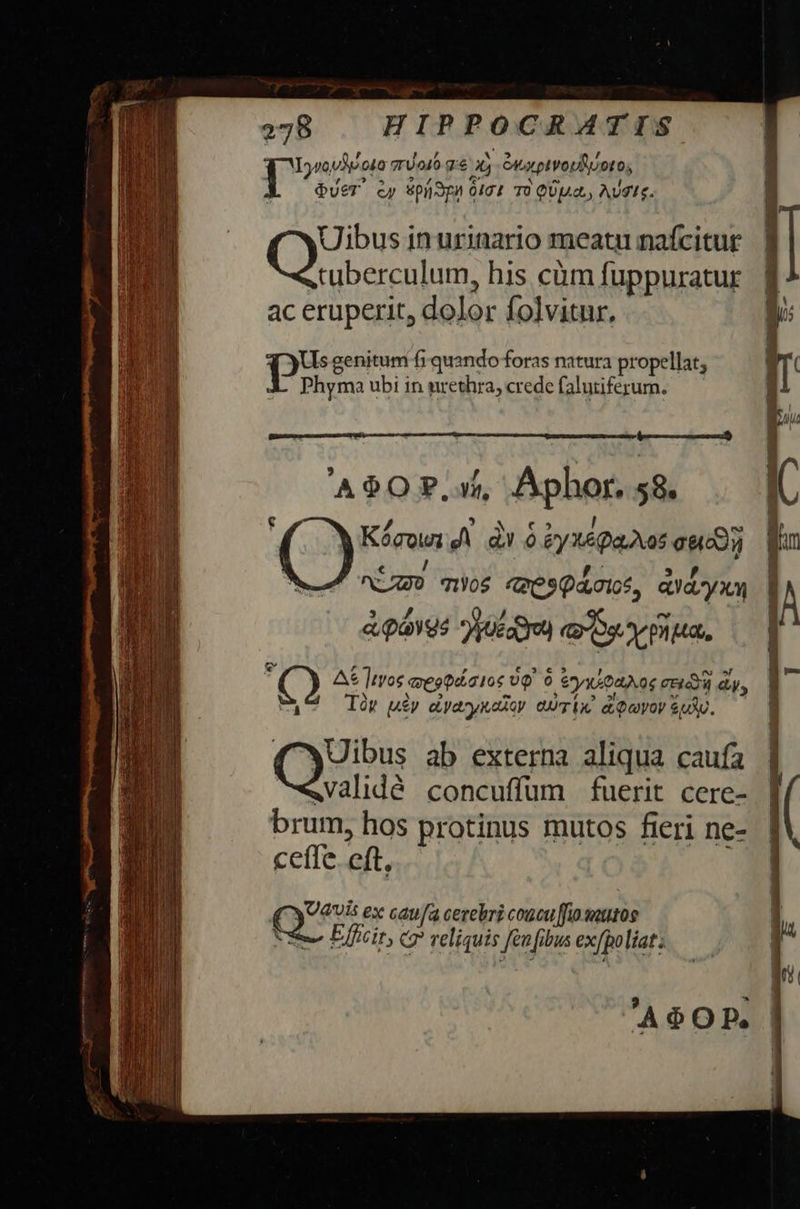 278 HIPPOCRATIS
φύετ' ἐν ὀρήθρῃ ὅισι τὸ φῦμα, λύσις.
QUibus in urinario meatu naſcitur
tuberculum, his cùm ſuppuratur
ac eruperit, dolor ſolvitur.
PUs genitum ſi quando foras natura propellat,
Phyma ubi in urethra, crede ſalutiferum.
ἈΦΟΡ. νή, Aphor. 58.
ὉΚόσοισι δ' ἂν ὁ ἐγκέφαλος σεισθῇ
ὑπό τινος προφάσιος, ἀνάγκη
ἀφώνους γενέσθαι παραχρῆμα.
Ὁ Δέ τινος προφάσιος ὑφ' ὁ ἐγκέφαλος σεισθῇ ἂν,
Τὸν μὲν ἀναγκαῖον αὐτίκ' ἄφωνον ἔμεν.
QUibus ab externa aliqua cauſa
validè concuſſum fuerit cere-
brum, hos protinus mutos fieri ne-
ceſſe eſt.
QUavis ex cauſa cerebri concuſſio mutos
Efficit, & reliquis ſenſibus exſpoliat.
ἈΦΟΡ.